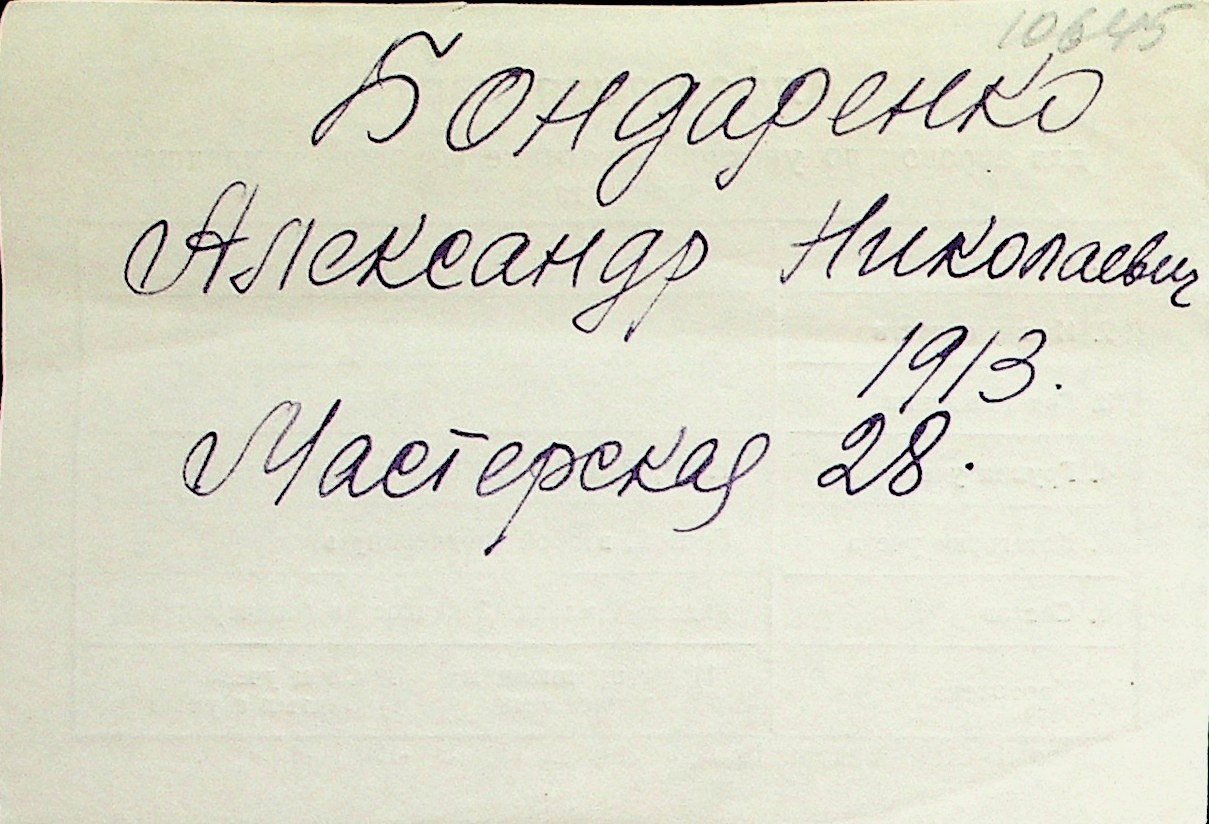 10645
Бондаренко
Александр Николаевич
1913.
Мастерская 28.